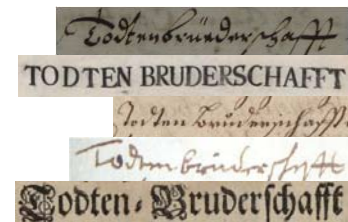 Todtenbrüederschafft
TODTEN BRUDERSCHAFFT
Todten bruderschafft
Todtenbruderschafft
Todten-Bruderschafft